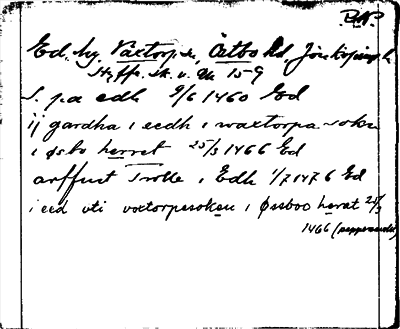 P.N.P.
Ed, by, Växtorps sn, Östbo hd, Jönköpings l.
Styffe, sk. u. Un 159
S. pa edh 9/6 1460 Ed
ij gardha i eedh i waxtorpa sokn
i øsbo herret 25/3 1466 Ed
arffuit Trolle i Edh 1/7 1476 Ed
i eed uti voxtorpesoken i Øssboo herat 25/3
1466 (pappersavskr)